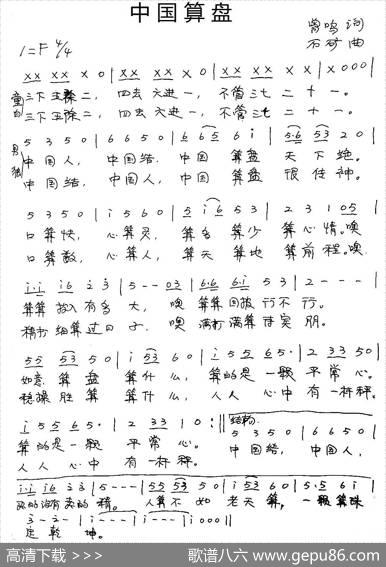 中国算盘
曾鸣 词
1=F 4/4
石矿 曲
xx xx x 0 | xx xx x 0 | xx xx xx xx | x 0 0 0 |
童白 三下五除二，四去六进一，不管三七二十一。
三下五除二，四去六进一，不管三七二十一。
5 3 5 0 | 6 6 5 0 | 6 6 5 6 i | 5·6 53 2 0 |
男独 中国人，中国结，中国算盘天下绝。
中国结，中国人，中国算盘很传神。
5 3 5 0 | i 5 6 0 | 5 i6 5 3 | 2 3 1 05 |
口算快，心算灵，算多算少算心情。噢
口算数，心算人，算天算地算前程。噢
i·i i6 2 3 | 5 - - 03 | 6·6 6i 5 3 | 2 - - - |
算算收入有多大，噢算算回报行不行。
精打细算过日子，噢满打满算
55 53 5 0 | i 53 6 0 | i 5 5 65· | 2 33 5 0 |
如意算盘算什么，算的是一颗平常心。
稳操胜算算什么，人人心中有一杆秤。
i 5 5 65· | 2 33 1 0 :‖ 结构 5 3 5 0 | 6 6 5 0 |
算的是一颗平常心。中国结，中国人，
人人心中有一杆秤。
i·i i6 2 3 | 5 - - - | 55 53 5 0 | i 53 6 0 | 5·5 6 i |
人算不如老天算，一颗算珠
3 - 2 - | i - - - | i - - - | i 0 0 0 ‖
定乾坤。
高清下载 >>>
歌谱八六 www.gepu86.com